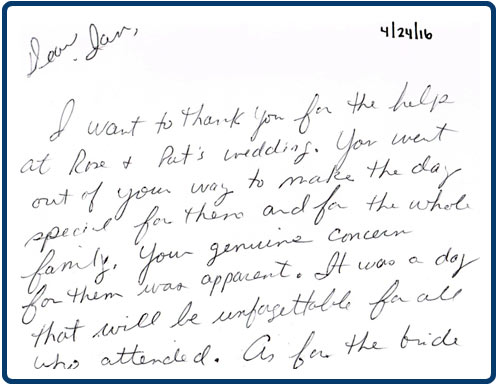 4/24/16
Dear Jan,
I want to thank you for the help
at Rose & Pat's wedding. You went
out of your way to make the day
special for them and for the whole
family. Your genuine concern
for them was apparent. It was a day
that will be unforgettable for all
who attended. As for the bride